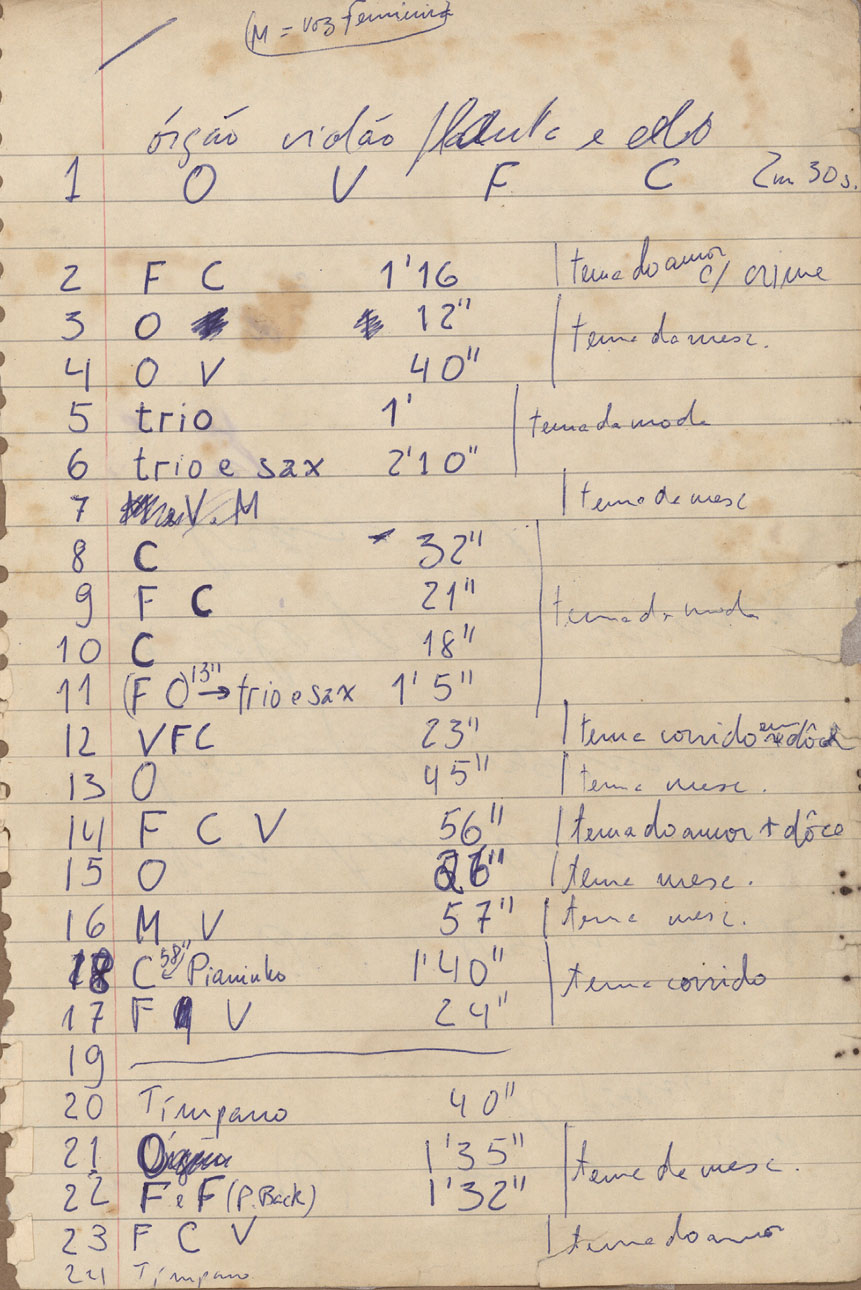 (M = voz feminina
órgão violão flauta e celo
1 O V F C 2m 30s.
2 F C 1'16 tema do amor c/ crime
3 O 12"
4 O V 40" tema da mesc.
5 trio 1'
6 trio e sax 2'10" tema da moda
7 V. M tema da mesc
8 C 32"
9 F C 21" tema da moda
10 C 18"
11 (F O 13" → trio e sax 1'5"
12 VFC 23" tema corrido dôce
13 O 45" tema mesc.
14 F C V 56" tema do amor + dôce
15 O tema mesc.
16 M V 57" tema mesc.
18 C 58" Pianinho 1'40" tema corrido
17 F V 24"
19
20 Tímpano 40"
21 Órgão 1'35"
22 F e F (P. Back) 1'32" tema da mesc.
23 F C V tema do amor
24 Tímpano